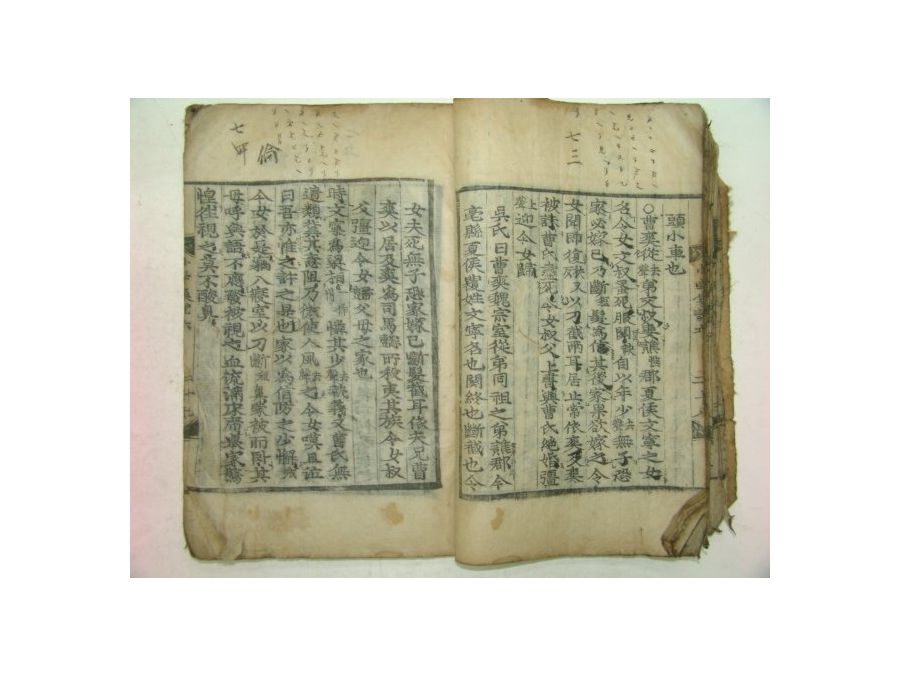 七三
頭小車也
○曹爽從去聲弟文叔妻譙郡夏侯文寧之女
名令女文叔蚤死服闋自以年少去聲無子恐
家必嫁己乃斷短髮爲信其後家果欲嫁之令
女聞卽復又以刀截兩耳居止常依爽及爽
被誅曹氏盡死令女叔父上書與曹氏絶婚彊
上聲迎令女歸
吳氏曰曹爽魏宗室從弟同祖之弟譙郡今
亳縣夏侯覆姓文寧名也闋終也斷截也令
倫
七四
女夫死無子恐家嫁己斷髮截耳依夫兄曹
爽以居及爽爲司馬懿所殺夷其族令女叔
父彊迎令女歸父母之家也
時文寧爲梁相憐其少去聲執義又曹氏無
遺類冀其意阻乃微使人風去聲之令女嘆且泣
曰吾亦惟之許之是也家以爲信防之少懈
令女於是竊入寢室以刀斷短鼻蒙被而臥其
母呼與語不應發被視之血流滿床席擧家驚
惶往視之莫不酸鼻